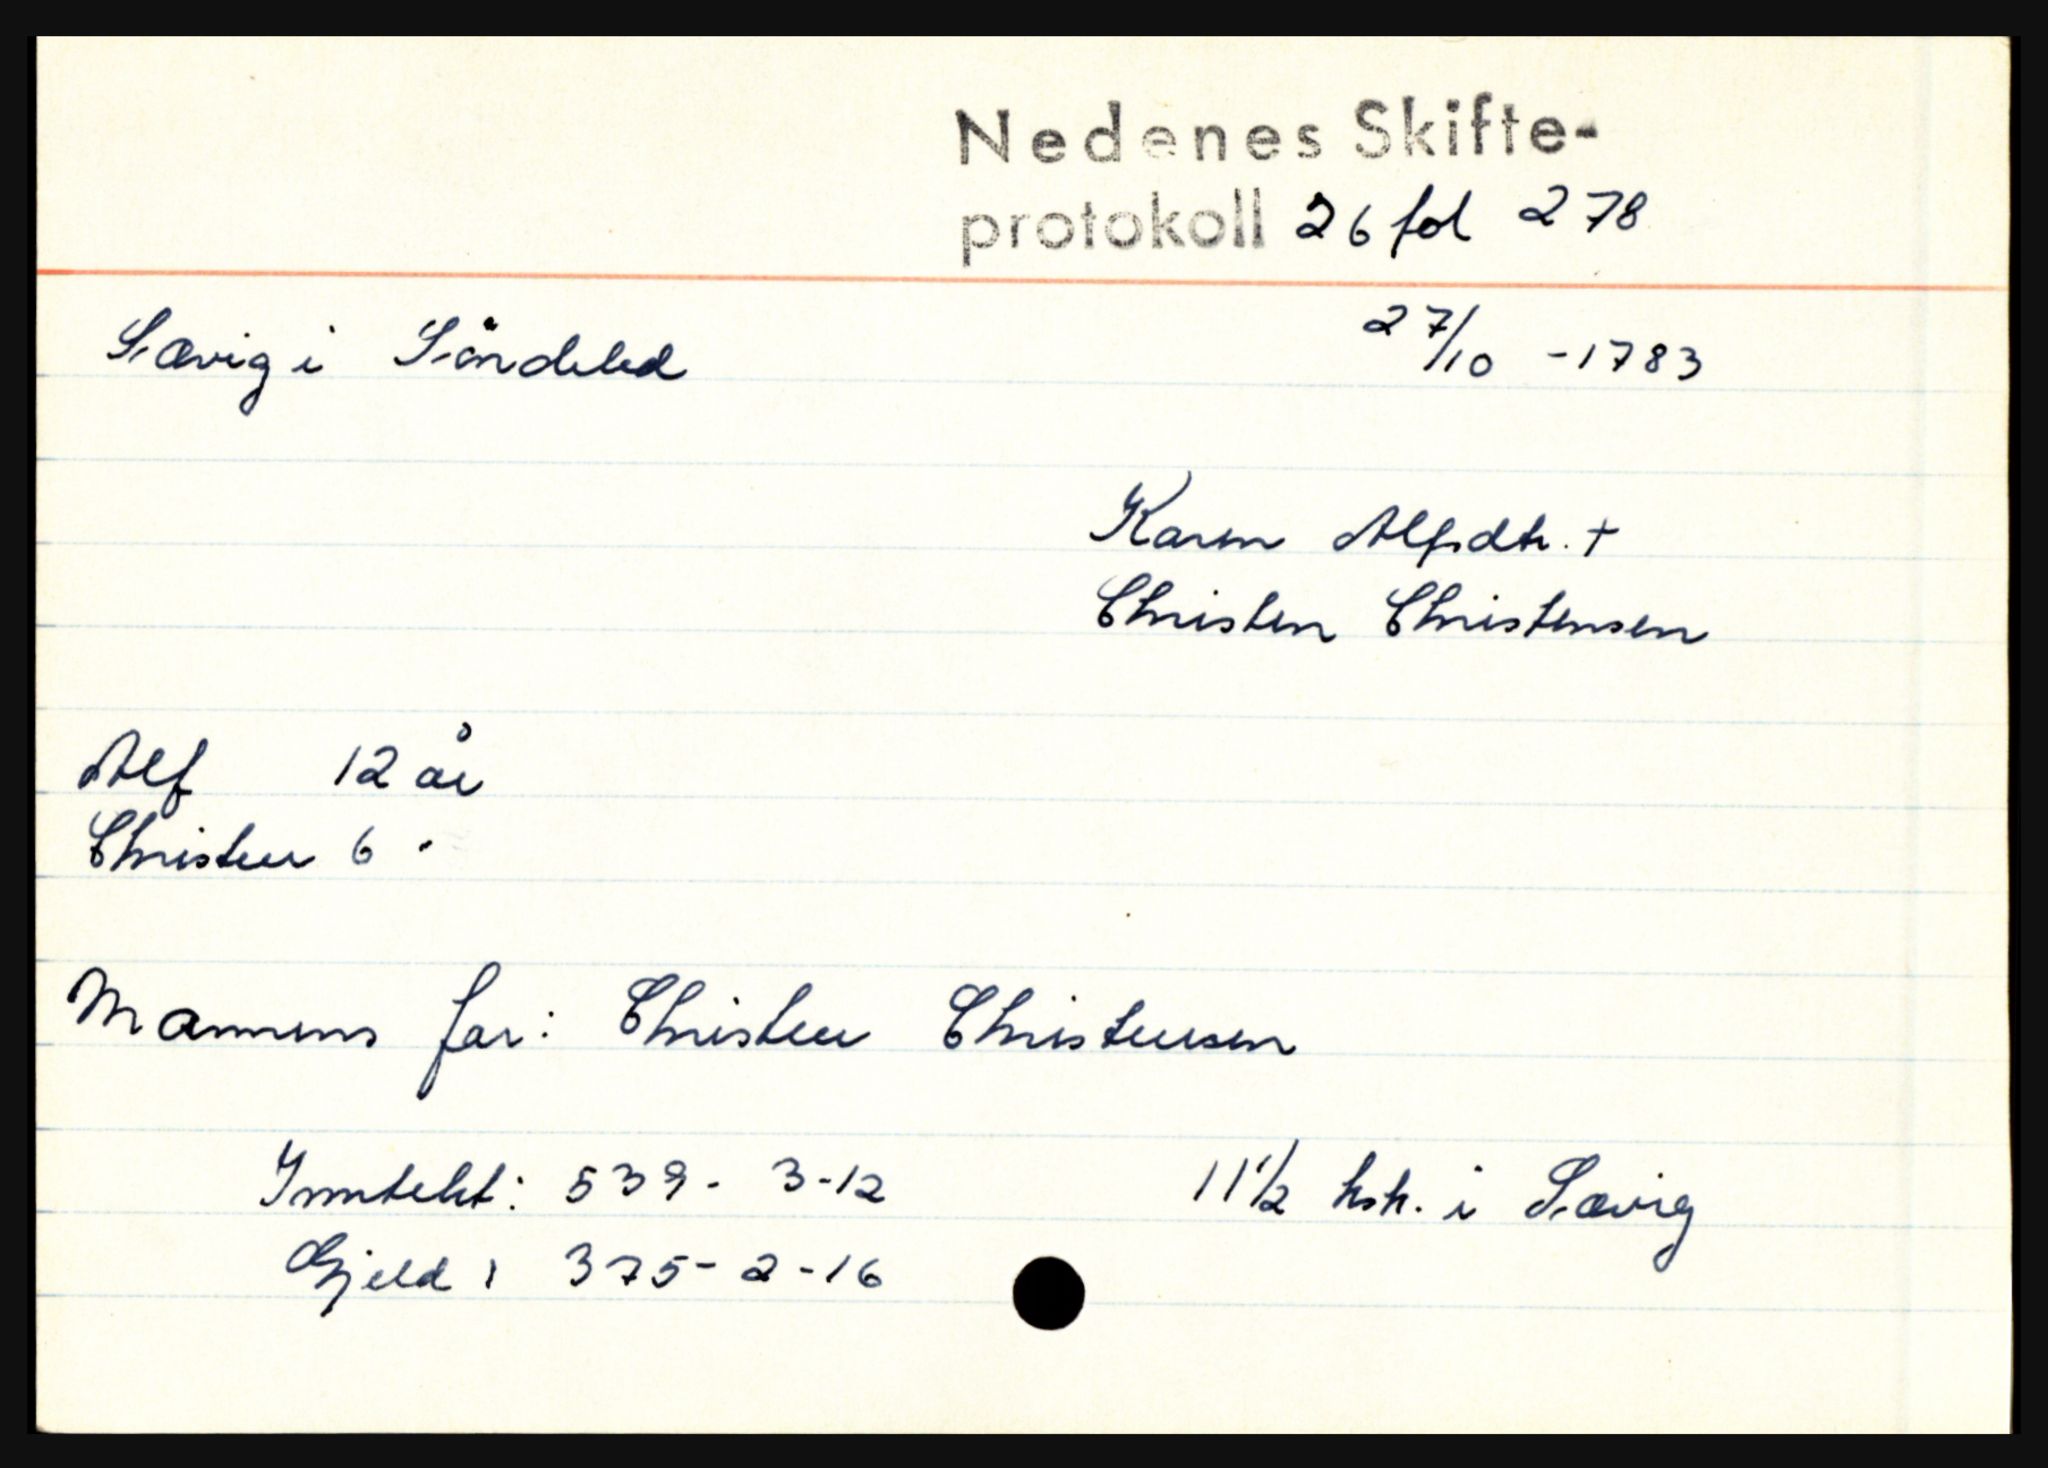 Nedenes Skifte-
protokoll 26 fol 278
Sævig i Söndeled 27/10 -1783
Karen Alfsdtr. +
Christen Christensen
Alf 12 år
Christen 6 "
Mannens far: Christen Christensen
Inntekt: 539 - 3-12 11 1/2 hsk. i Sævig
Gjeld : 375 - 2 - 16